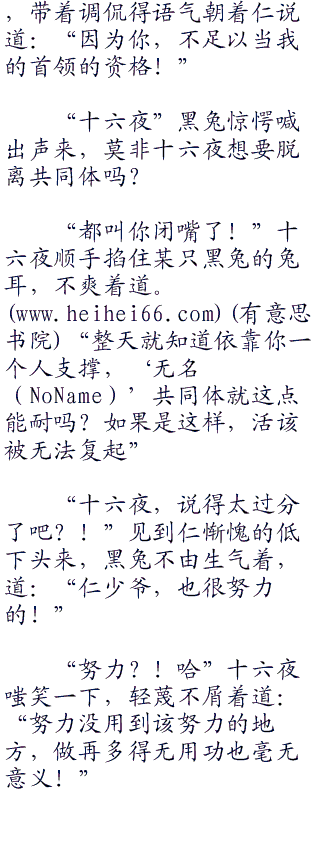 ，带着调侃得语气朝着仁说
道：“因为你，不足以当我
的首领的资格！”
“十六夜”黑兔惊愕喊
出声来，莫非十六夜想要脱
离共同体吗？
“都叫你闭嘴了！”十
六夜顺手掐住某只黑兔的兔
耳，不爽着道。
(www.heihei66.com)(有意思
书院)“整天就知道依靠你一
个人支撑，‘无名
（NoName）’共同体就这点
能耐吗？如果是这样，活该
被无法复起”
“十六夜，说得太过分
了吧？！”见到仁惭愧的低
下头来，黑兔不由生气着，
道：“仁少爷，也很努力
的！”
“努力？！哈”十六夜
嗤笑一下，轻蔑不屑着道：
“努力没用到该努力的地
方，做再多得无用功也毫无
意义！”